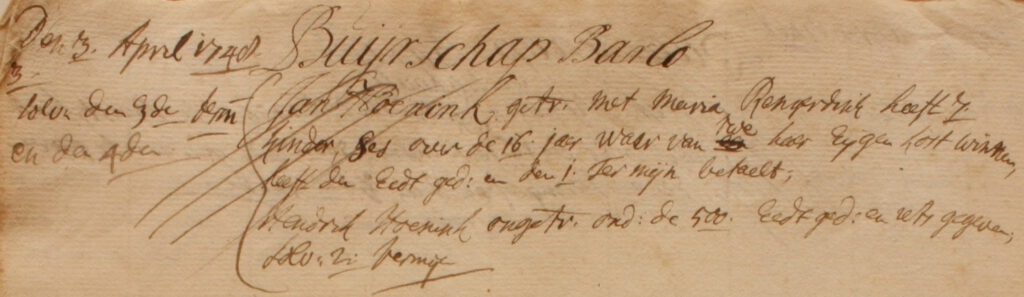 Den 3. April 1748. Buijrschap Barlo
3.
solv: den 3de term
en den 4den
Jan Hoenink, getr. met Maria Rengerdink heeft 7
kinder, ses over de 16: jaar waar van twe haer Eijgen kost winnen,
heeft den Eedt ged: en den 1: Termijn betaelt;
Hendrik Hoenink ongetr. ond: de 500: Eedt ged: en iets gegeven,
solv: 2: termijn